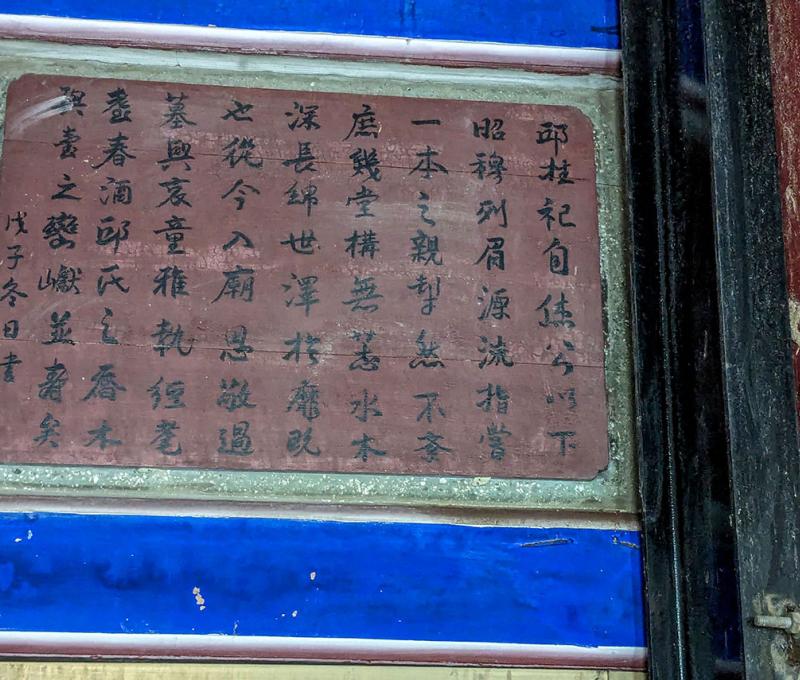 邱桂祀自焦公以下
昭穆列眉源流指掌
一本之親犁然不紊
庶幾堂構無恙水木
深長綿世澤於靡既
也從今入廟思敬過
墓興哀童雅執經耄
耋春酒邱氏之喬木
與壺之巒巘並壽矣
戊子冬日書